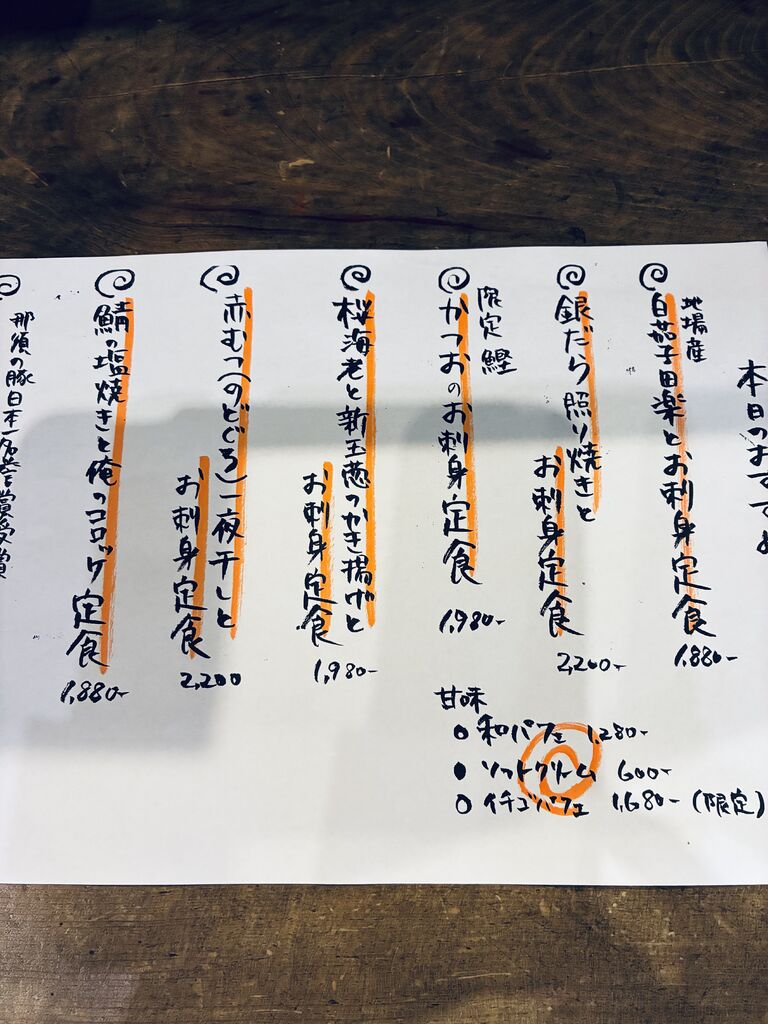 本日のおすすめ
地場産
白茄子田楽とお刺身定食
1,880-
銀だら照り焼きと
お刺身定食
2,200-
限定鰹
かつおのお刺身定食
1,980-
桜海老と新玉葱のかき揚げと
お刺身定食
1,980-
赤むつ(のどぐろ)一夜干しと
お刺身定食
2,200
鯖の塩焼きと俺のコロッケ定食
1,880-
那須の豚日本一名誉賞受賞
甘味
和パフェ 1,280-
ソフトクリーム 600-
イチゴパフェ 1,680-(限定)